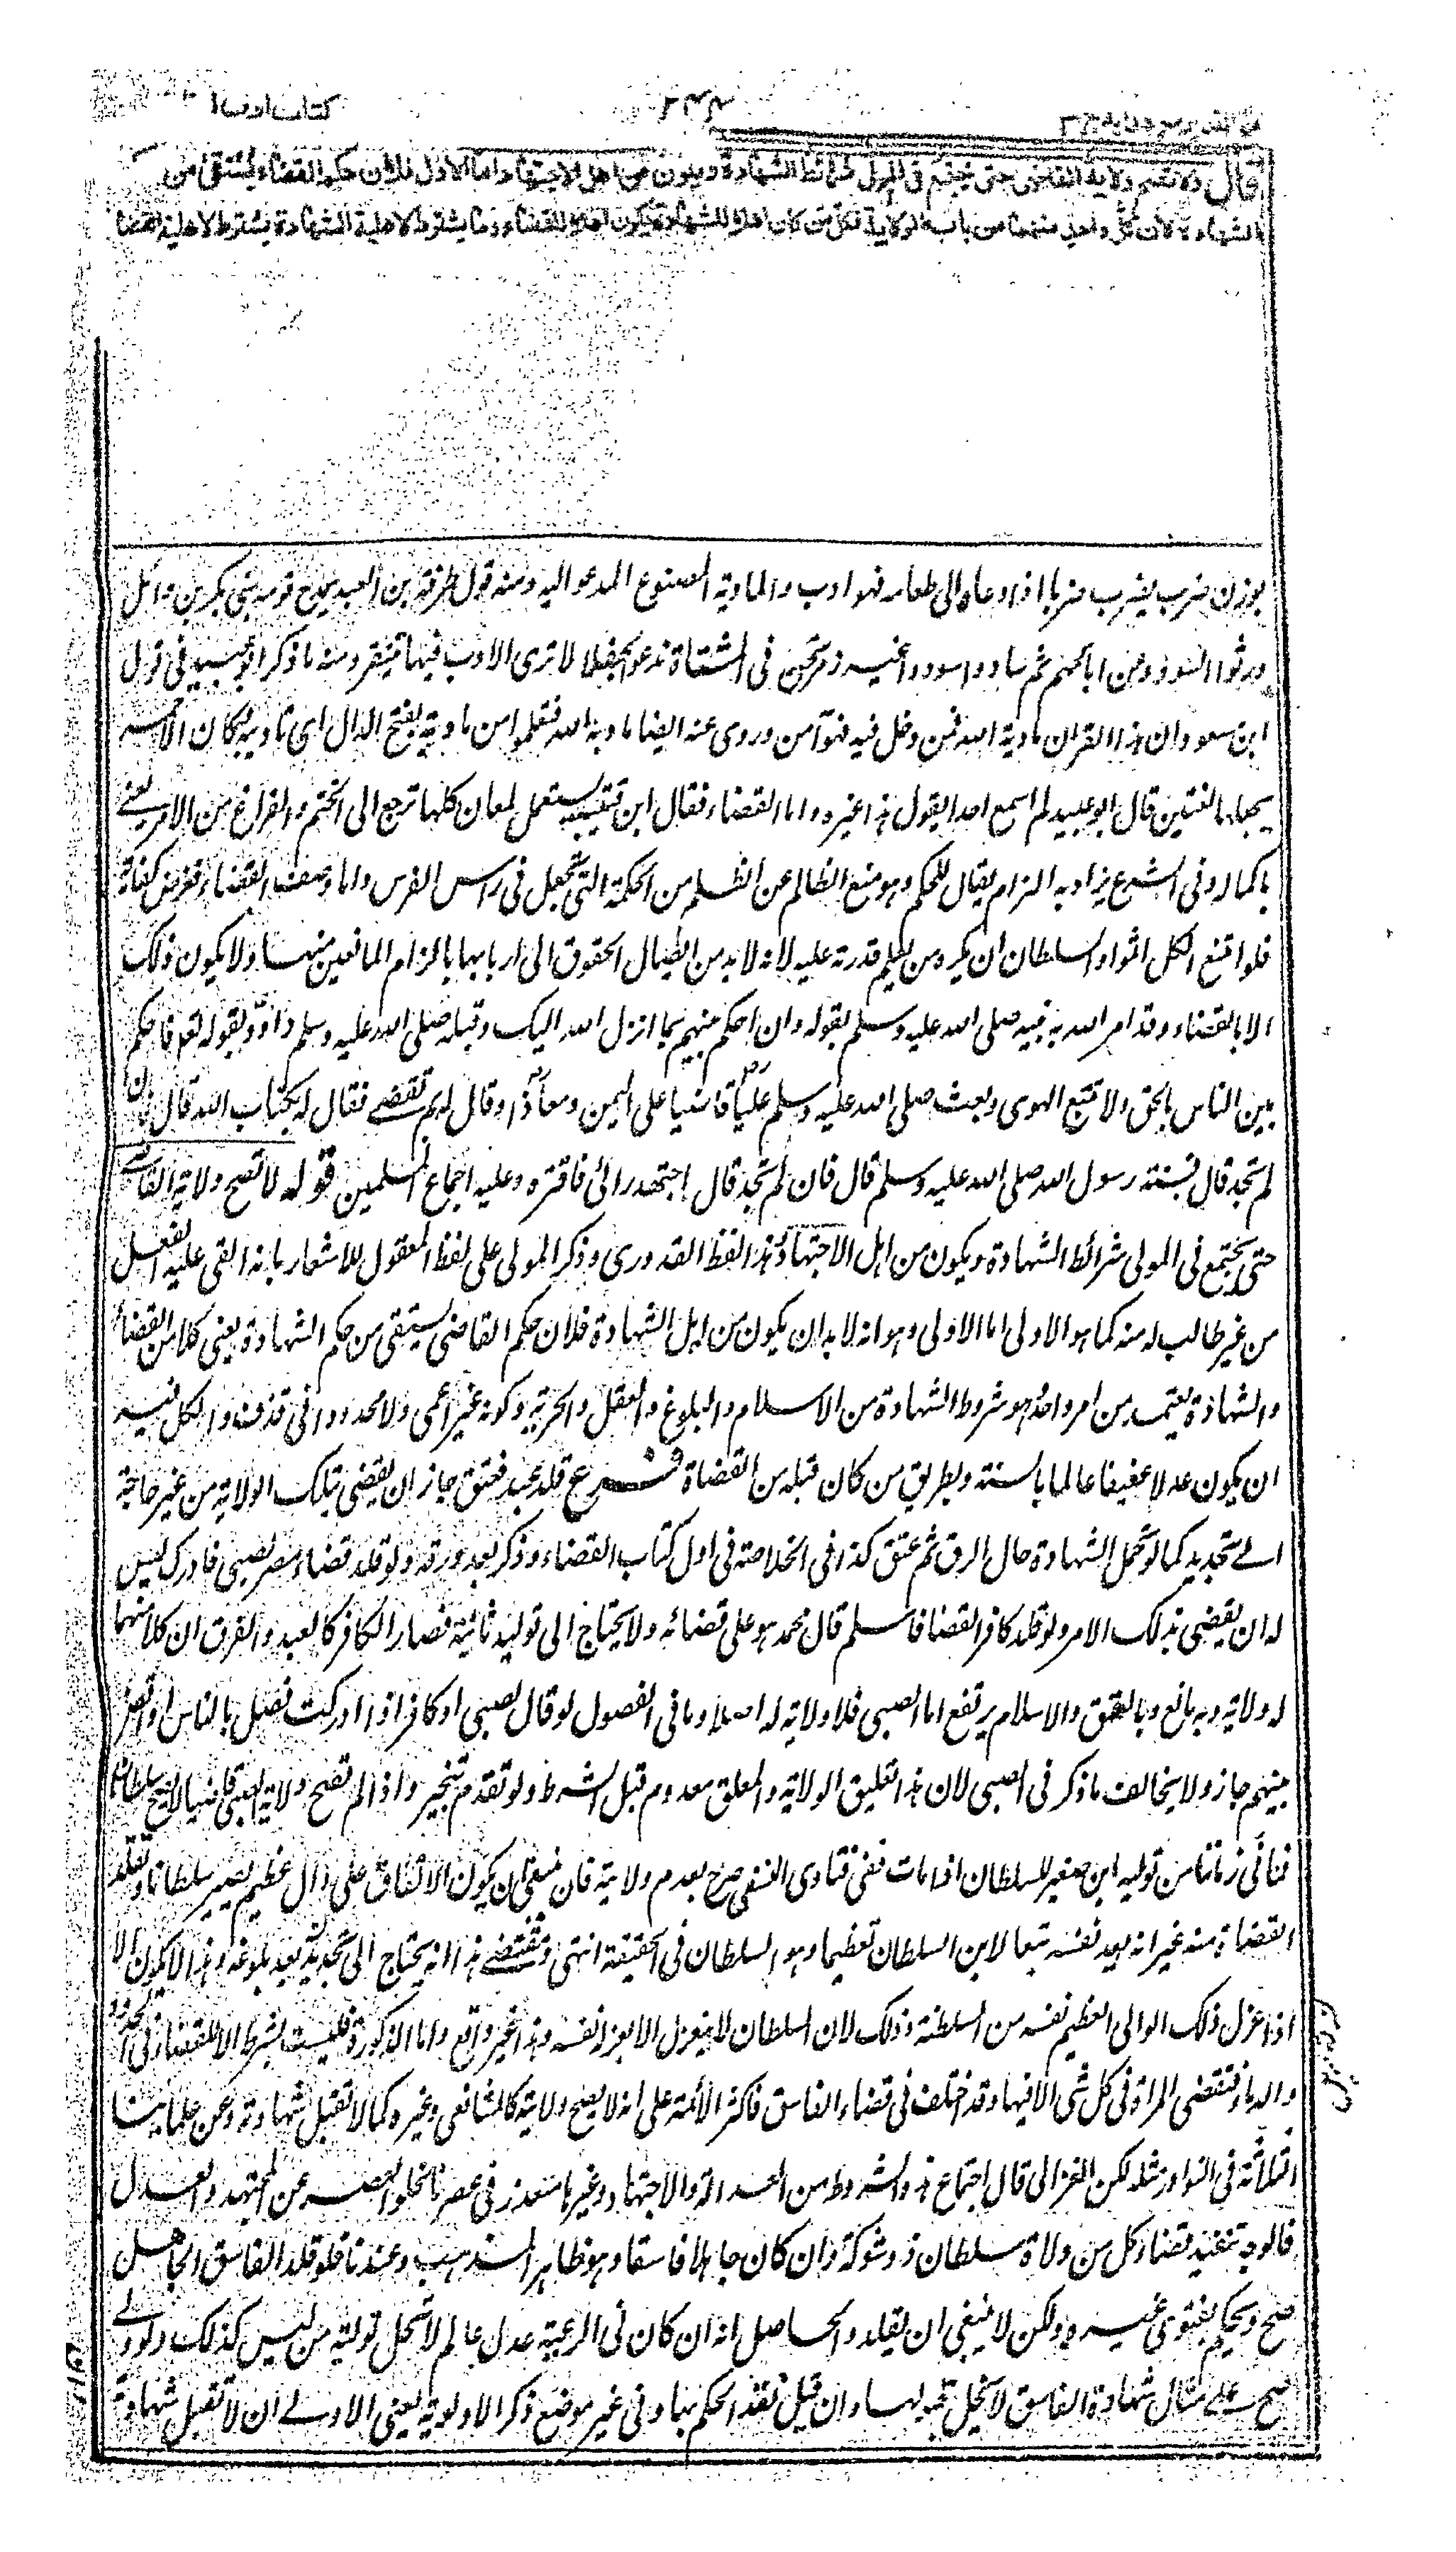 كتاب ادب ا
قال ولا تصح ولاية القاضى حتى يجتمع فى المولى شرائط الشهادة ويكون من اهل الاجتهاد اما الاول فلان حكم القضاء يستقى من
الشهادة لان كل واحد منهما من باب الولاية فكل من كان اهلا للشهادة يكون اهلا للقضاء وما يشترط لاهلية الشهادة يشترط لاهلية القضا
بوزن ضرب يضرب ضربا اذا دعاه الى طعامه فهو ادب والمادبة المصنوع المدعو اليه ومنه قول طرفة بن العبد يمدح قومه بنى بكر بن وائل
ورثوا السودد عن ابائهم ثم سادوا سوددا غير زمر نحن فى المشتاة ندعو الجفلا لا ترى الادب فيها ينتقر ومنه ما ذكر ابو عبيد فى قول
ابن مسعود ان هذا القران مادبة الله فمن دخل فيه فهو آمن وروى عنه ايضا مادبة الله فتعلموا من مادبة بفتح الدال اى تاديبه وكان الاحمر
يجعلهما لغتين قال ابو عبيد لم اسمع احدا يقول هذا غيره واما القضاء فقال ابن قتيبة يستعمل لمعان كلها ترجع الى الختم والفراغ من الامر يعنى
باكماله وفى الشرع يراد به الزام يقال للحكم وهو منع الظالم عن الظلم من الحكمة التى تجعل فى راس الفرس واما وصف القضاء ففرض كفاية
فلو امتنع الكل اثموا والسلطان ان يكره من يعلم قدرته عليه لانه لابد من ايصال الحقوق الى اربابها بالزام المانعين منها ولا يكون ذلك
الا بالقضاء وقد امر الله به نبيه صلى الله عليه وسلم بقوله وان احكم بينهم بما انزل الله اليك وقبله صلى الله عليه وسلم داود بقوله تعم فاحكم
بين الناس بالحق ولا تتبع الهوى وبعث صلى الله عليه وسلم عليا قاضيا على اليمن ومعاذا وقال له بم تقضى فقال له بكتاب الله قال فان
لم تجد قال فبسنة رسول الله صلى الله عليه وسلم قال فان لم تجد قال اجتهد رائى فاقره وعليه اجماع المسلمين قوله لا تصح ولاية القاضى
حتى يجتمع فى المولى شرائط الشهادة ويكون من اهل الاجتهاد هذا لفظ القدورى وذكر المولى على لفظ المعقول للاشعار بانه القى عليه الفعل
من غير طالب له منه كما هو الاولى اما الاولى وهو انه لابد ان يكون من اهل الشهادة فلان حكم القاضى يستقى من حكم الشهادة يعنى كلا من القضاء
والشهادة يعتمد من امر واحد هو شروط الشهادة من الاسلام والبلوغ والعقل والحرية وكونه غير اعمى ولا محدودا فى قذف والكل فيه
ان يكون عدلا عفيفا عالما بالسنة وبطريق من كان قبله من القضاة فرع قلد عبد فعتق جاز ان يقضى بتلك الولاية من غير حاجة
الى تجديد كما لو تحمل الشهادة حال الرق ثم عتق كذا فى الخلاصة فى اول كتاب القضاء وذكر بعد ورقة ولو قلد قضاء مصر لصبى فادرك ليس
له ان يقضى بذلك الامر ولو قلد كافر القضا فاسلم قال محمد هو على قضائه ولا يحتاج الى تولية ثانية فصار الكافر كالعبد والفرق ان كلا منهما
له ولاية وبه مانع وبالعتق والاسلام يرتفع اما الصبى فلا ولاية له اصلا وما فى الفصول لو قال لصبى او كافر اذا ادركت فصل بالناس او اقض
بينهم جاز ولا يخالف ما ذكر فى الصبى لان هذا تعليق الولاية والمعلق معدوم قبل الشرط ولو تقدم تنجيز واذا لم تصح ولاية الصبى قاضيا لا يصح سلطانا
فما فى زماننا من تولية ابن صغير للسلطان اذا مات ففى فتاوى النسفى صرح بعدم ولايته فان ينبغى ان يكون الاتفاق على وال عظيم يصير سلطانا وتقلد
القضاة منه غير انه يعد نفسه تبعا لابن السلطان تعظيما وهو السلطان فى الحقيقة انتهى ومقتضى هذا انه يحتاج الى تجديد بعد بلوغه وهذا لا يكون الا
اذا عزل ذلك الوالى العظيم نفسه من السلطنة وذلك لان السلطان لا ينعزل الا بعزله نفسه وهذا غير واقع واما الذكورة فليست بشرط الا للقضاء فى الحدود
والدماء فتقضى المراة فى كل شئ الا فيهما وقد اختلف فى قضاء الفاسق فاكثر الائمة على انه لا يصح ولايته كالشافعى وغيره كما لا تقبل شهادته وعن علمائنا
الثلاثة فى النوادر مثله لكن الغزالى قال اجتماع هذه الشروط من العدالة والاجتهاد وغيرهما متعذر فى عصرنا لخلو العصر عن المجتهد والعدل
فالوجه تنفيذ قضاء كل من ولاه سلطان ذو شوكة وان كان جاهلا فاسقا وهو ظاهر المذهب وعندنا فلو قلد الفاسق الجاهل
صح ويحكم بفتوى غيره ولكن لا ينبغى ان يقلد والحاصل انه ان كان فى الرعية عدل عالم لا تحل تولية من ليس كذلك ولو ولى
صح على مثال شهادة الفاسق لا يحل قبولها وان قبل نفذ الحكم بها وفى غير موضع ذكر الاولوية يعنى الاولى ان لا تقبل شهادة